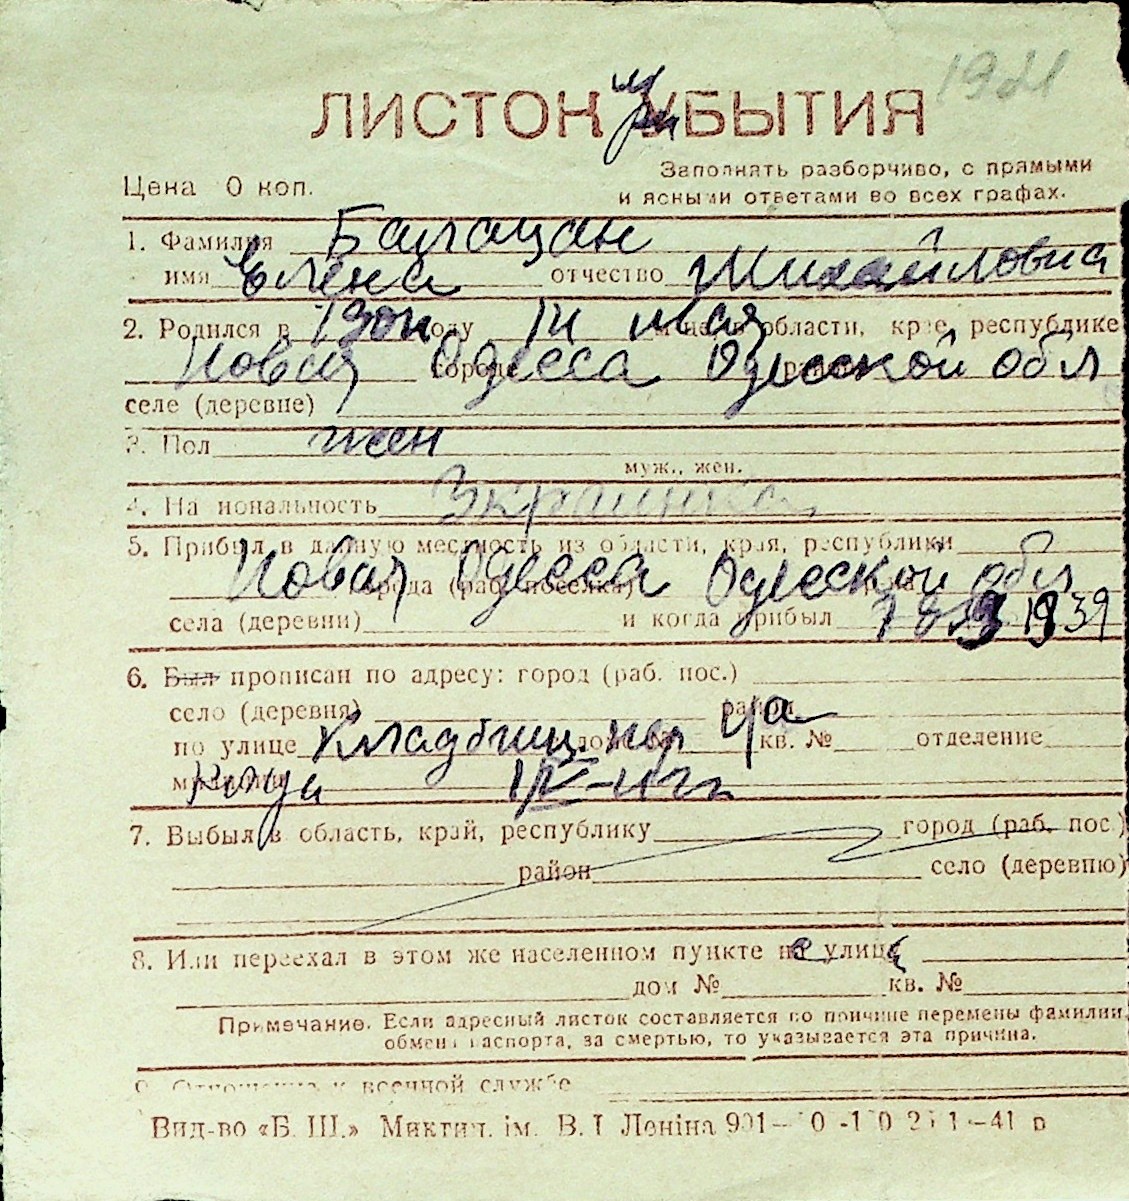 1921
ЛИСТОК УБЫТИЯ
при
Заполнять разборчиво, с прямыми
Цена 0 коп.
и ясными ответами во всех графах.
1. Фамилия Балацан
имя Елена отчество Михайловна
2. Родился в году 14 мая месяце области, крае, республике
Новая городе Одесса Одесской обл
селе (деревне)
3. Пол жен
муж., жен.
4. Национальность Украинка
5. Прибыл в данную местность из области, края, республики
Новая Одесса города (раб. поселка) Одесской обл
села (деревни) и когда прибыл 1939
6. Был прописан по адресу: город (раб. пос.)
село (деревня) район
по улице Кладбищ. пер 4а кв. № отделение
милиции
7. Выбыл в область, край, республику город (раб. пос.)
район село (деревню)
8. Или переехал в этом же населенном пункте на улицу
дом № кв. №
Примечание. Если адресный листок составляется по причине перемены фамилии,
обмена паспорта, за смертью, то указывается эта причина.
9. Отношение к военной службе
Вид-во «Б. Ш.» Миктип. ім. В. І Леніна